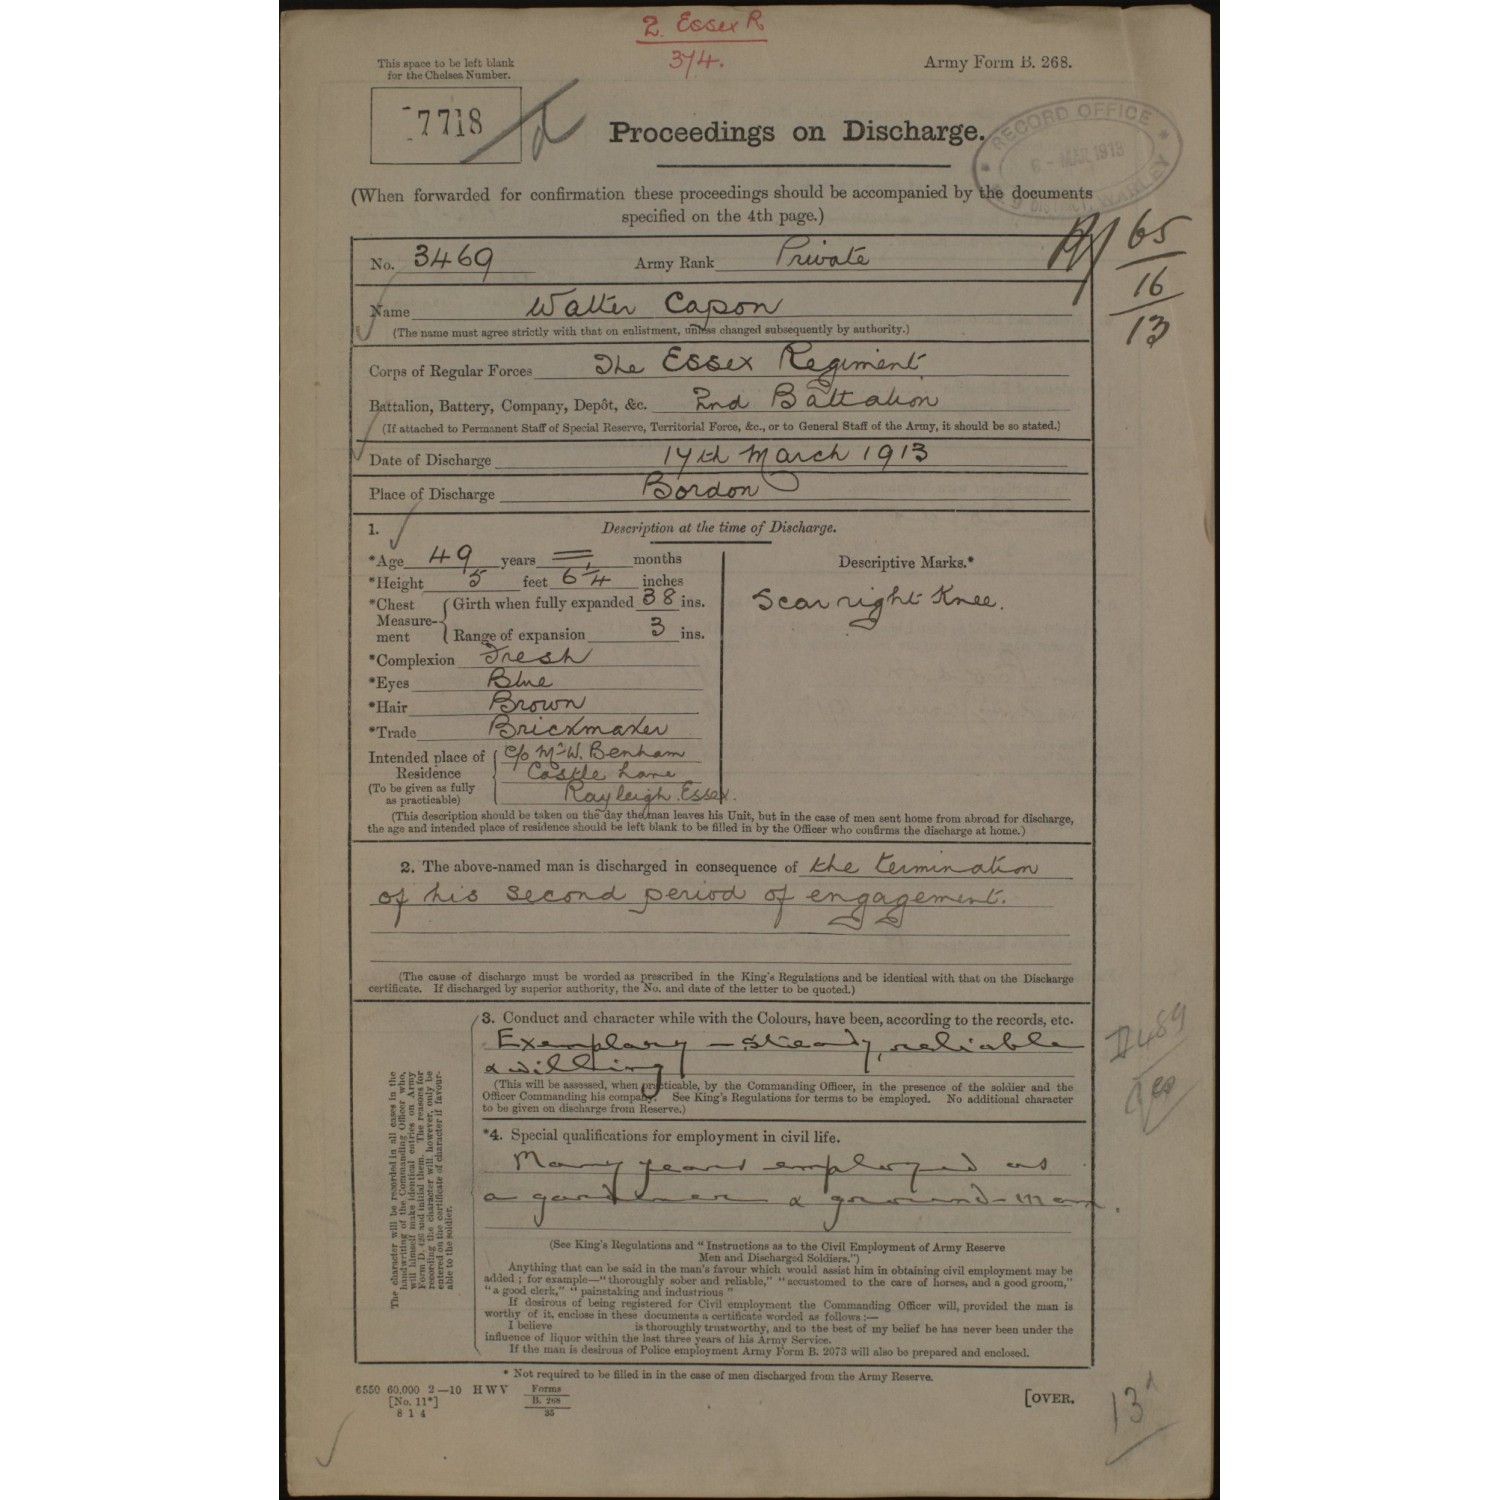 2. Essex R
374.
This space to be left blank
for the Chelsea Number.
Army Form B. 268.
7718
Proceedings on Discharge.
RECORD OFFICE
6 - MAR 1913
DISTRICT, WARLEY
(When forwarded for confirmation these proceedings should be accompanied by the documents
specified on the 4th page.)
65
16
13
No. 3469 Army Rank Private
Name Walter Capon
(The name must agree strictly with that on enlistment, unless changed subsequently by authority.)
Corps of Regular Forces The Essex Regiment
Battalion, Battery, Company, Depôt, &c. 2nd Battalion
(If attached to Permanent Staff of Special Reserve, Territorial Force, &c., or to General Staff of the Army, it should be so stated.)
Date of Discharge 14th March 1913
Place of Discharge Bordon
1. Description at the time of Discharge.
*Age 49 years = months
*Height 5 feet 6¼ inches
*Chest Measure-ment { Girth when fully expanded 38 ins.
Range of expansion 3 ins.
*Complexion Fresh
*Eyes Blue
*Hair Brown
*Trade Brickmaker
Intended place of Residence
(To be given as fully
as practicable)
c/o Mr W. Benham
Castle Lane
Rayleigh. Essex.
Descriptive Marks.*
Scar right Knee.
(This description should be taken on the day the man leaves his Unit, but in the case of men sent home from abroad for discharge,
the age and intended place of residence should be left blank to be filled in by the Officer who confirms the discharge at home.)
2. The above-named man is discharged in consequence of the termination
of his second period of engagement.
(The cause of discharge must be worded as prescribed in the King's Regulations and be identical with that on the Discharge
certificate. If discharged by superior authority, the No. and date of the letter to be quoted.)
The character will be recorded in all cases in the
handwriting of the Commanding Officer who,
will himself make identical entries on Army
Form D. 426 and initial them. The reasons for
recording the character will however, only be
entered on the certificate of character if favour-
able to the soldier.
3. Conduct and character while with the Colours, have been, according to the records, etc.
Exemplary - Steady, reliable
& willing
(This will be assessed, when practicable, by the Commanding Officer, in the presence of the soldier and the
Officer Commanding his company. See King's Regulations for terms to be employed. No additional character
to be given on discharge from Reserve.)
*4. Special qualifications for employment in civil life.
Many years employed as
a gardener & ground-man.
(See King's Regulations and "Instructions as to the Civil Employment of Army Reserve
Men and Discharged Soldiers.")
Anything that can be said in the man's favour which would assist him in obtaining civil employment may be
added; for example—"thoroughly sober and reliable," "accustomed to the care of horses, and a good groom,"
"a good clerk," "painstaking and industrious"
If desirous of being registered for Civil employment the Commanding Officer will, provided the man is
worthy of it, enclose in these documents a certificate worded as follows:—
I believe is thoroughly trustworthy, and to the best of my belief he has never been under the
influence of liquor within the last three years of his Army Service.
If the man is desirous of Police employment Army Form B. 2073 will also be prepared and enclosed.
* Not required to be filled in in the case of men discharged from the Army Reserve.
6550 60,000 2—10 H W V Forms
B. 268
35
[No. 11*]
8 1 4
[OVER.
13